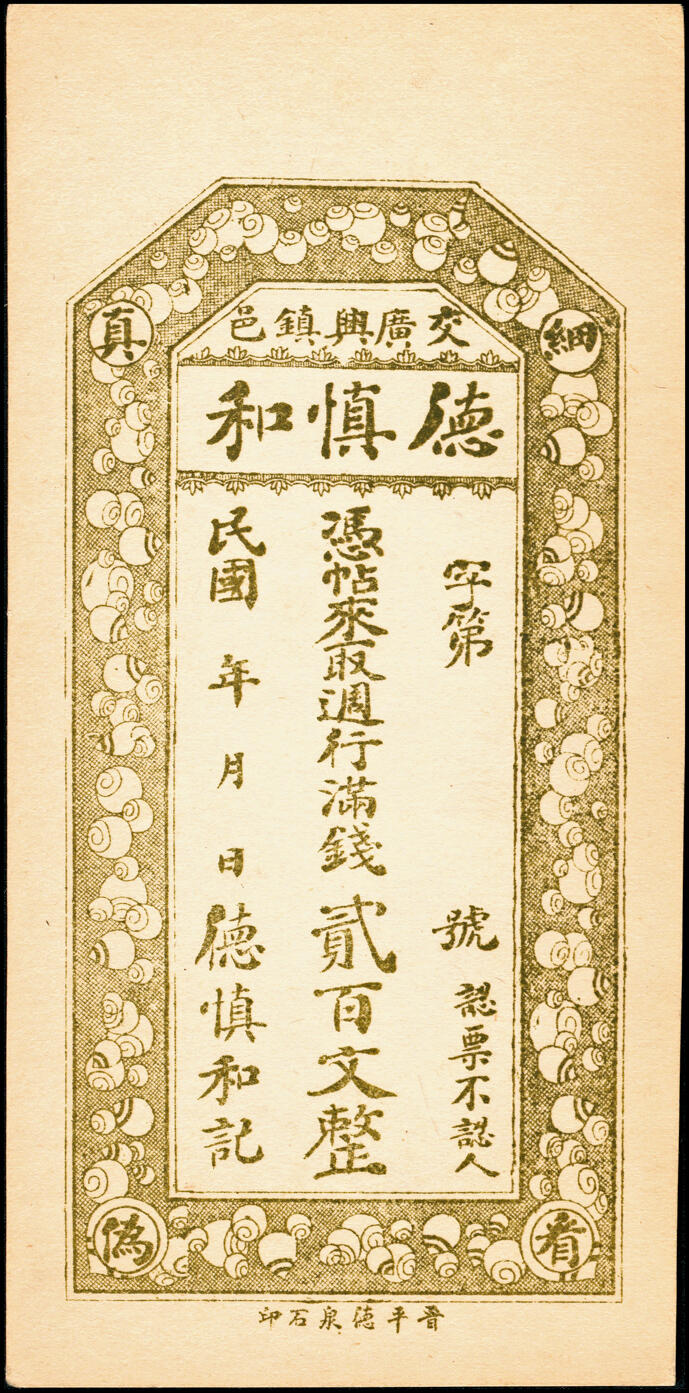 交廣興鎮邑
德慎和
字第 號 認票不認人
憑帖來取週行滿錢貳百文整
民國 年 月 日 德慎和記
細看真偽
晉平德泉石印